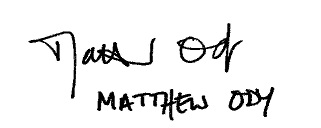 Matthew Ody
MATTHEW ODY